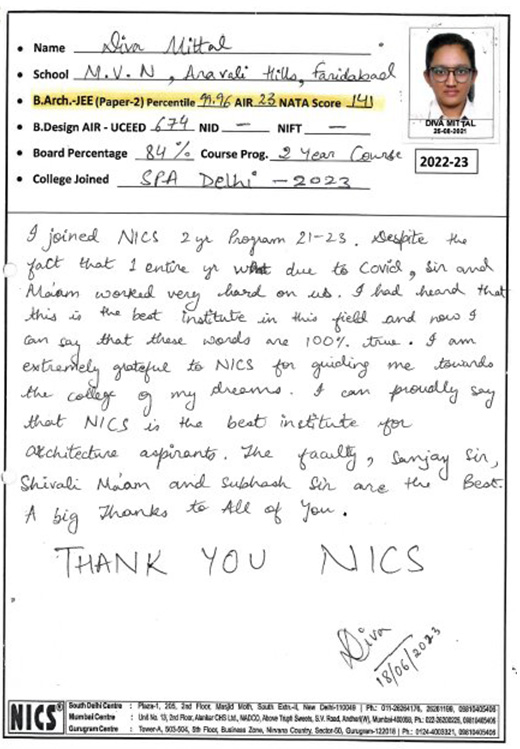 • Name Diva Mittal
• School M.V.N, Aravali Hills, Faridabad
• B.Arch.-JEE (Paper-2) Percentile 99.96 AIR 23 NATA Score 141
• B.Design AIR - UCEED 674 NID — NIFT —
• Board Percentage 84% Course Prog. 2 Year Course
• College Joined SPA Delhi - 2023
DIVA MITTAL
26-08-2021
2022-23
I joined NICS 2 yr Program 21-23. Despite the
fact that 1 entire yr went due to Covid, Sir and
Ma'am worked very hard on us. I had heard that
this is the best institute in this field and now I
can say that these words are 100% true. I am
extremely grateful to NICS for guiding me towards
the college of my dreams. I can proudly say
that NICS is the best institute for
architecture aspirants. The faculty, Sanjay Sir,
Shivali Ma'am and Subhash Sir are the Best.
A big Thanks to All of You.
THANK YOU NICS
Diva
18/06/2023
NICS®
South Delhi Centre : Plaza-1, 205, 2nd Floor, Masjid Moth, South Extn.-II, New Delhi-110049 | Ph.: 011-26264176, 26261199, 09810405406
Mumbai Centre : Unit No. 13, 2nd Floor, Alankar CHS Ltd., NADCO, Above Trupti Sweets, S.V. Road, Andheri(W), Mumbai-400058, Ph.: 022-26200226, 09810405406
Gurugram Centre : Tower-A, 503-504, 5th Floor, Business Zone, Nirvana Country, Sector-50, Gurugram-122018 | Ph.: 0124-4083321, 09810405406